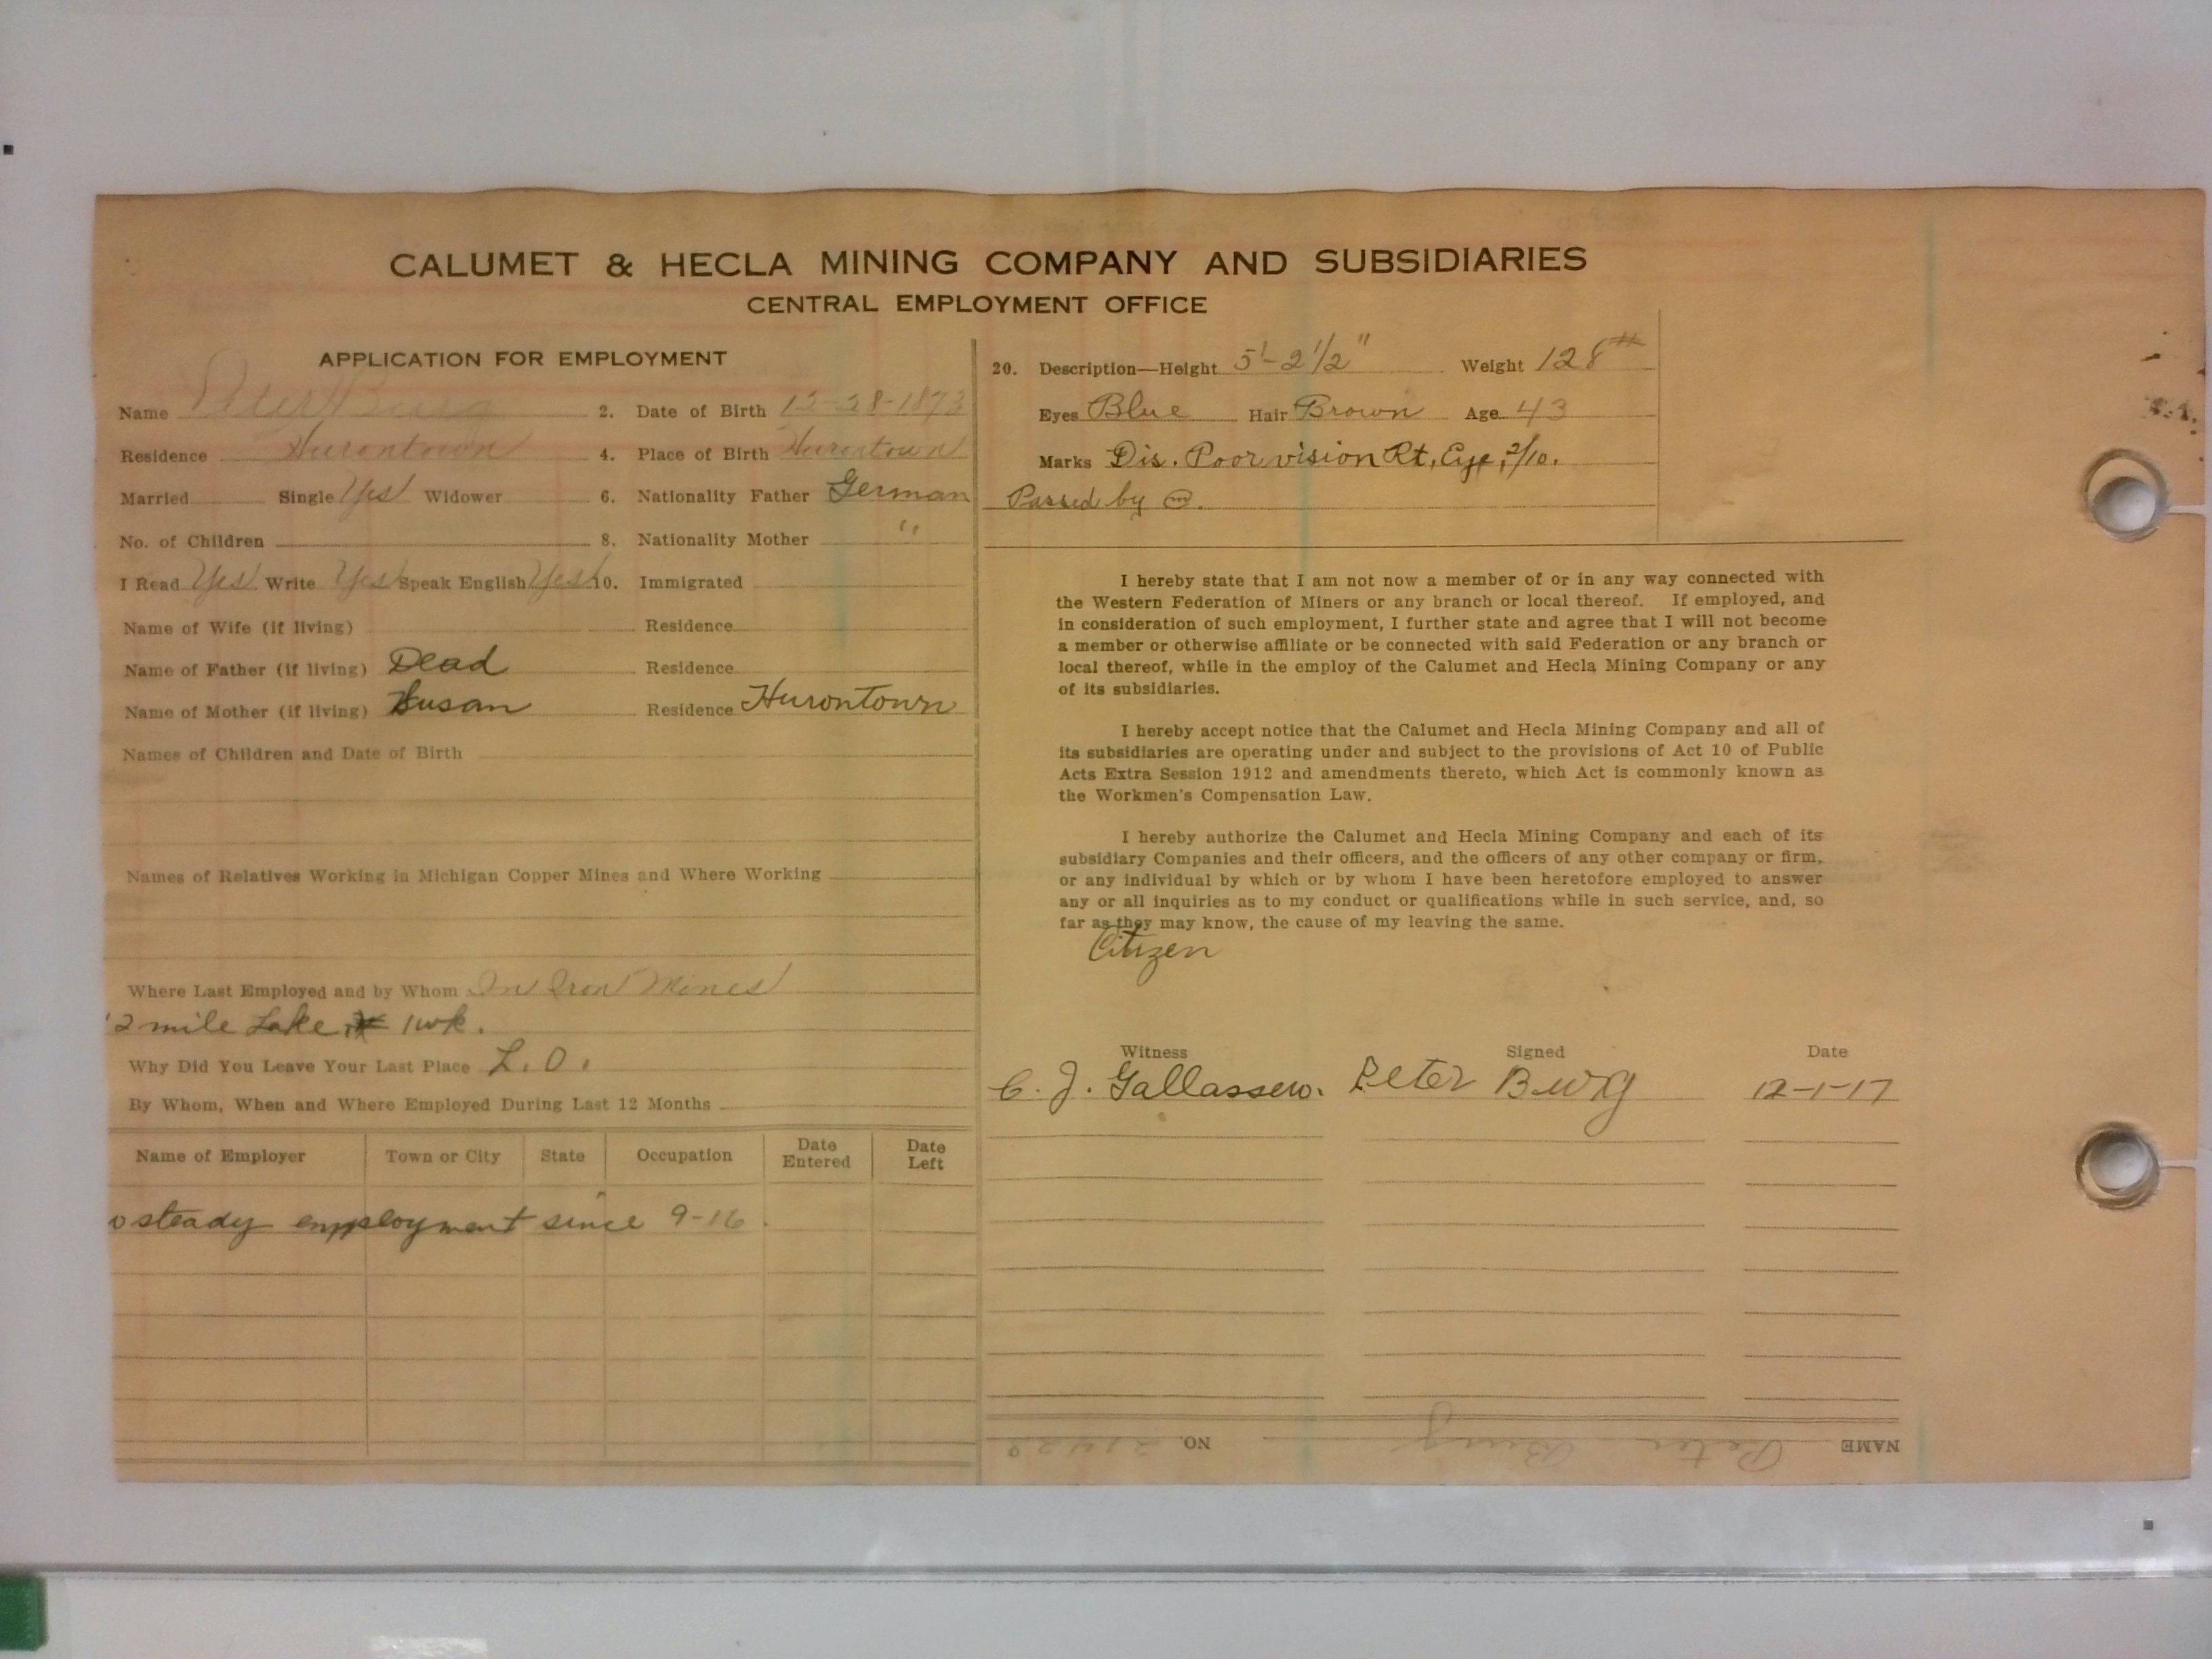 CALUMET & HECLA MINING COMPANY AND SUBSIDIARIES
CENTRAL EMPLOYMENT OFFICE
APPLICATION FOR EMPLOYMENT
Name Peter Burg 2. Date of Birth 12-28-1873
Residence Hurontown 4. Place of Birth Hurontown
Married Single Yes Widower 6. Nationality Father German
No. of Children 8. Nationality Mother "
I Read Yes Write Yes Speak English Yes 10. Immigrated
Name of Wife (if living) Residence
Name of Father (if living) Dead Residence
Name of Mother (if living) Susan Residence Hurontown
Names of Children and Date of Birth
Names of Relatives Working in Michigan Copper Mines and Where Working
Where Last Employed and by Whom In Iron Mines
12 mile Lake, 1 wk.
Why Did You Leave Your Last Place L.O.
By Whom, When and Where Employed During Last 12 Months
Name of Employer Town or City State Occupation Date Entered Date Left
o steady employment since 9-16.
20. Description—Height 5'-2 1/2" Weight 128#
Eyes Blue Hair Brown Age 43
Marks Dis. Poor vision Rt. Eye, 2/10.
Passed by
I hereby state that I am not now a member of or in any way connected with
the Western Federation of Miners or any branch or local thereof. If employed, and
in consideration of such employment, I further state and agree that I will not become
a member or otherwise affiliate or be connected with said Federation or any branch or
local thereof, while in the employ of the Calumet and Hecla Mining Company or any
of its subsidiaries.
I hereby accept notice that the Calumet and Hecla Mining Company and all of
its subsidiaries are operating under and subject to the provisions of Act 10 of Public
Acts Extra Session 1912 and amendments thereto, which Act is commonly known as
the Workmen's Compensation Law.
I hereby authorize the Calumet and Hecla Mining Company and each of its
subsidiary Companies and their officers, and the officers of any other company or firm,
or any individual by which or by whom I have been heretofore employed to answer
any or all inquiries as to my conduct or qualifications while in such service, and, so
far as they may know, the cause of my leaving the same.
Citizen
Witness Signed Date
C. J. Gallassero. Peter Burg 12-1-17
NAME Peter Burg NO.